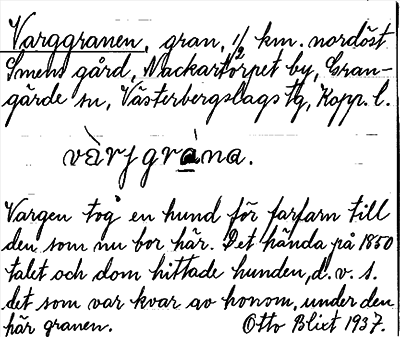 Varggranen, gran, 1/2 km. nordöst
Smens gård, Nackartorpet by, Gran-
gärde sn, Västerbergslags tg, Kopp. l.
vàrjgràna.
Vargen tog en hund för farfarn till
den som nu bor här. Det hända på 1850
talet och dom hittade hunden, d.v.s.
det som var kvar av honom, under den
här granen. Otto Blixt 1937.